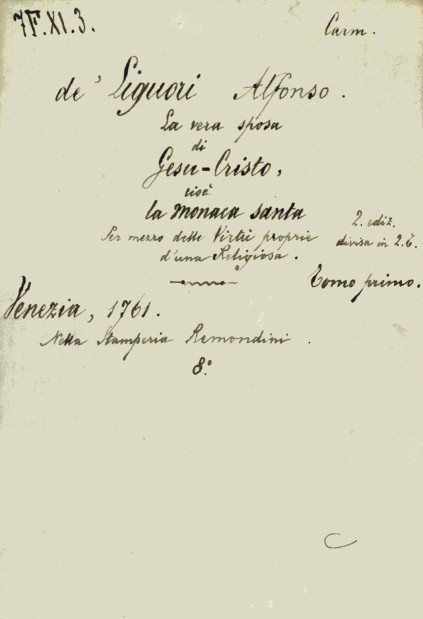 7F.XI.3.
Carm.
de' Liguori Alfonso.
La vera sposa
di
Gesu-Cristo,
cioè
la monaca santa
Per mezzo delle Virtù proprie
d'una Religiosa.
2. ediz.
divisa in 2. t.
Tomo primo.
Venezia, 1761.
Nella Stamperia Remondini.
8°